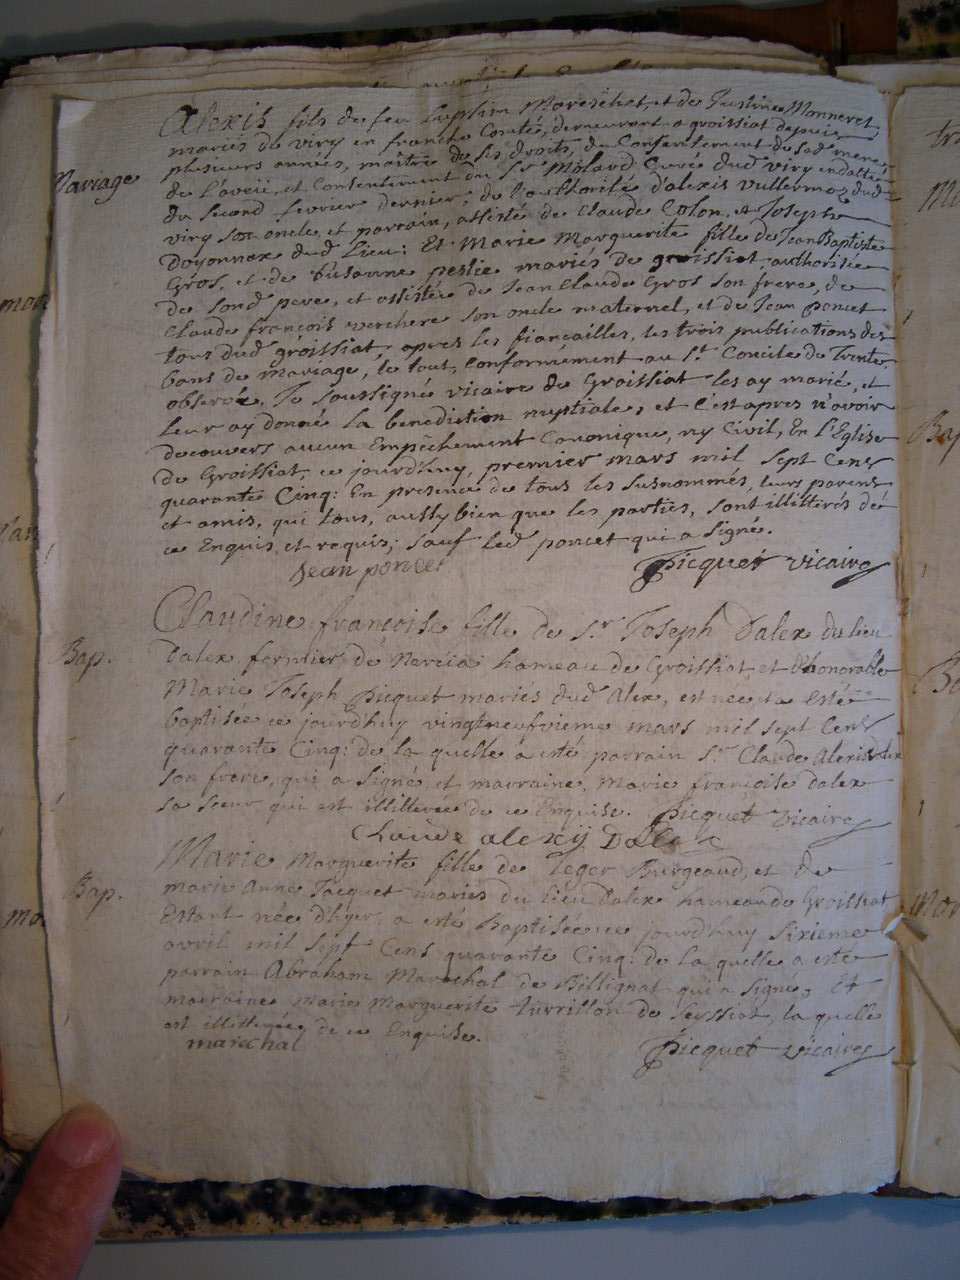 Mariage
Alexis fils de feu Cuplin Mareschet, et de Justine Monneret,
mariés de viry en franche Comté, demeurant a groissiat depuis
plusieurs années, maître de ses droits, du Consentement de sad. mere
de l'aveü, et Consentement du Sr Molard Curé dud. viry en datte
du second fevrier dernier, de l'authorité d'alexis vuillermoz dud.
viry son oncle, et parrain, assisté de Claude Colon, et Joseph
Doyonnax dud. Lieu; Et Marie Marguerite fille de Jean Baptiste
Gros, et de Susanne peslie mariés de groissiat authorisée
de sond. pere, et assistée de Jean Claude Gros son frere, de
Claude françois verchere son oncle maternel, et de Jean poncet
tous dud. groissiat, apres les fiançailles, les trois publications des
bans de mariage, le tout, Conformément au St Concile de Trente,
observé. Je soussigné vicaire de Groissiat les ay marié, et
leur ay donné la benediction nuptiale, et c'est apres n'avoir
decouvers aucun Empêchement Canonique, ny Civil, En l'Eglise
de Groissiat, ce jourd'huy, premier mars mil sept Cens
quarante Cinq: En presence de tous les susnommés, leurs parens
et amis, qui tous, aussy bien que les parties, sont illitterés de
ce Enquis, et requis; sauf led. poncet qui a signé.
Jean poncet Picquet vicaire
Bap.
Claudine françoise fille de Sr Joseph Dalex du lieu
Dalex fermier de Nerciat hameau de Groissiat, et d'honorable
Marie Joseph Picquet mariés dud. Alex, est née et a esté
baptisée ce jourd'huy vingtneufvieme mars mil sept Cens
quarante Cinq: de la quelle a esté parrain Sr Claude Alexis Dalex
son frere, qui a signé, et marraine, Marie françoise dalex
sa soeur qui est illitterée de ce Enquise. Picquet vicaire
Claude alexij Dalex
Bap.
Marie Marguerite fille de Leger Burgeaud, et de
marie Anne Jacquet mariés du lieu dalex hameau de Groissiat
Estant née d'hyer, a esté Baptisée ce jourd'huy sixieme
avril mil sept Cens quarante Cinq: de la quelle a esté
parrain Abraham Marechal de Bellignat qui a signé, Et
marraine Marie Marguerite turrillon de Seyssiat, la quelle
est illitterée de ce Enquise.
marechal Picquet vicaire